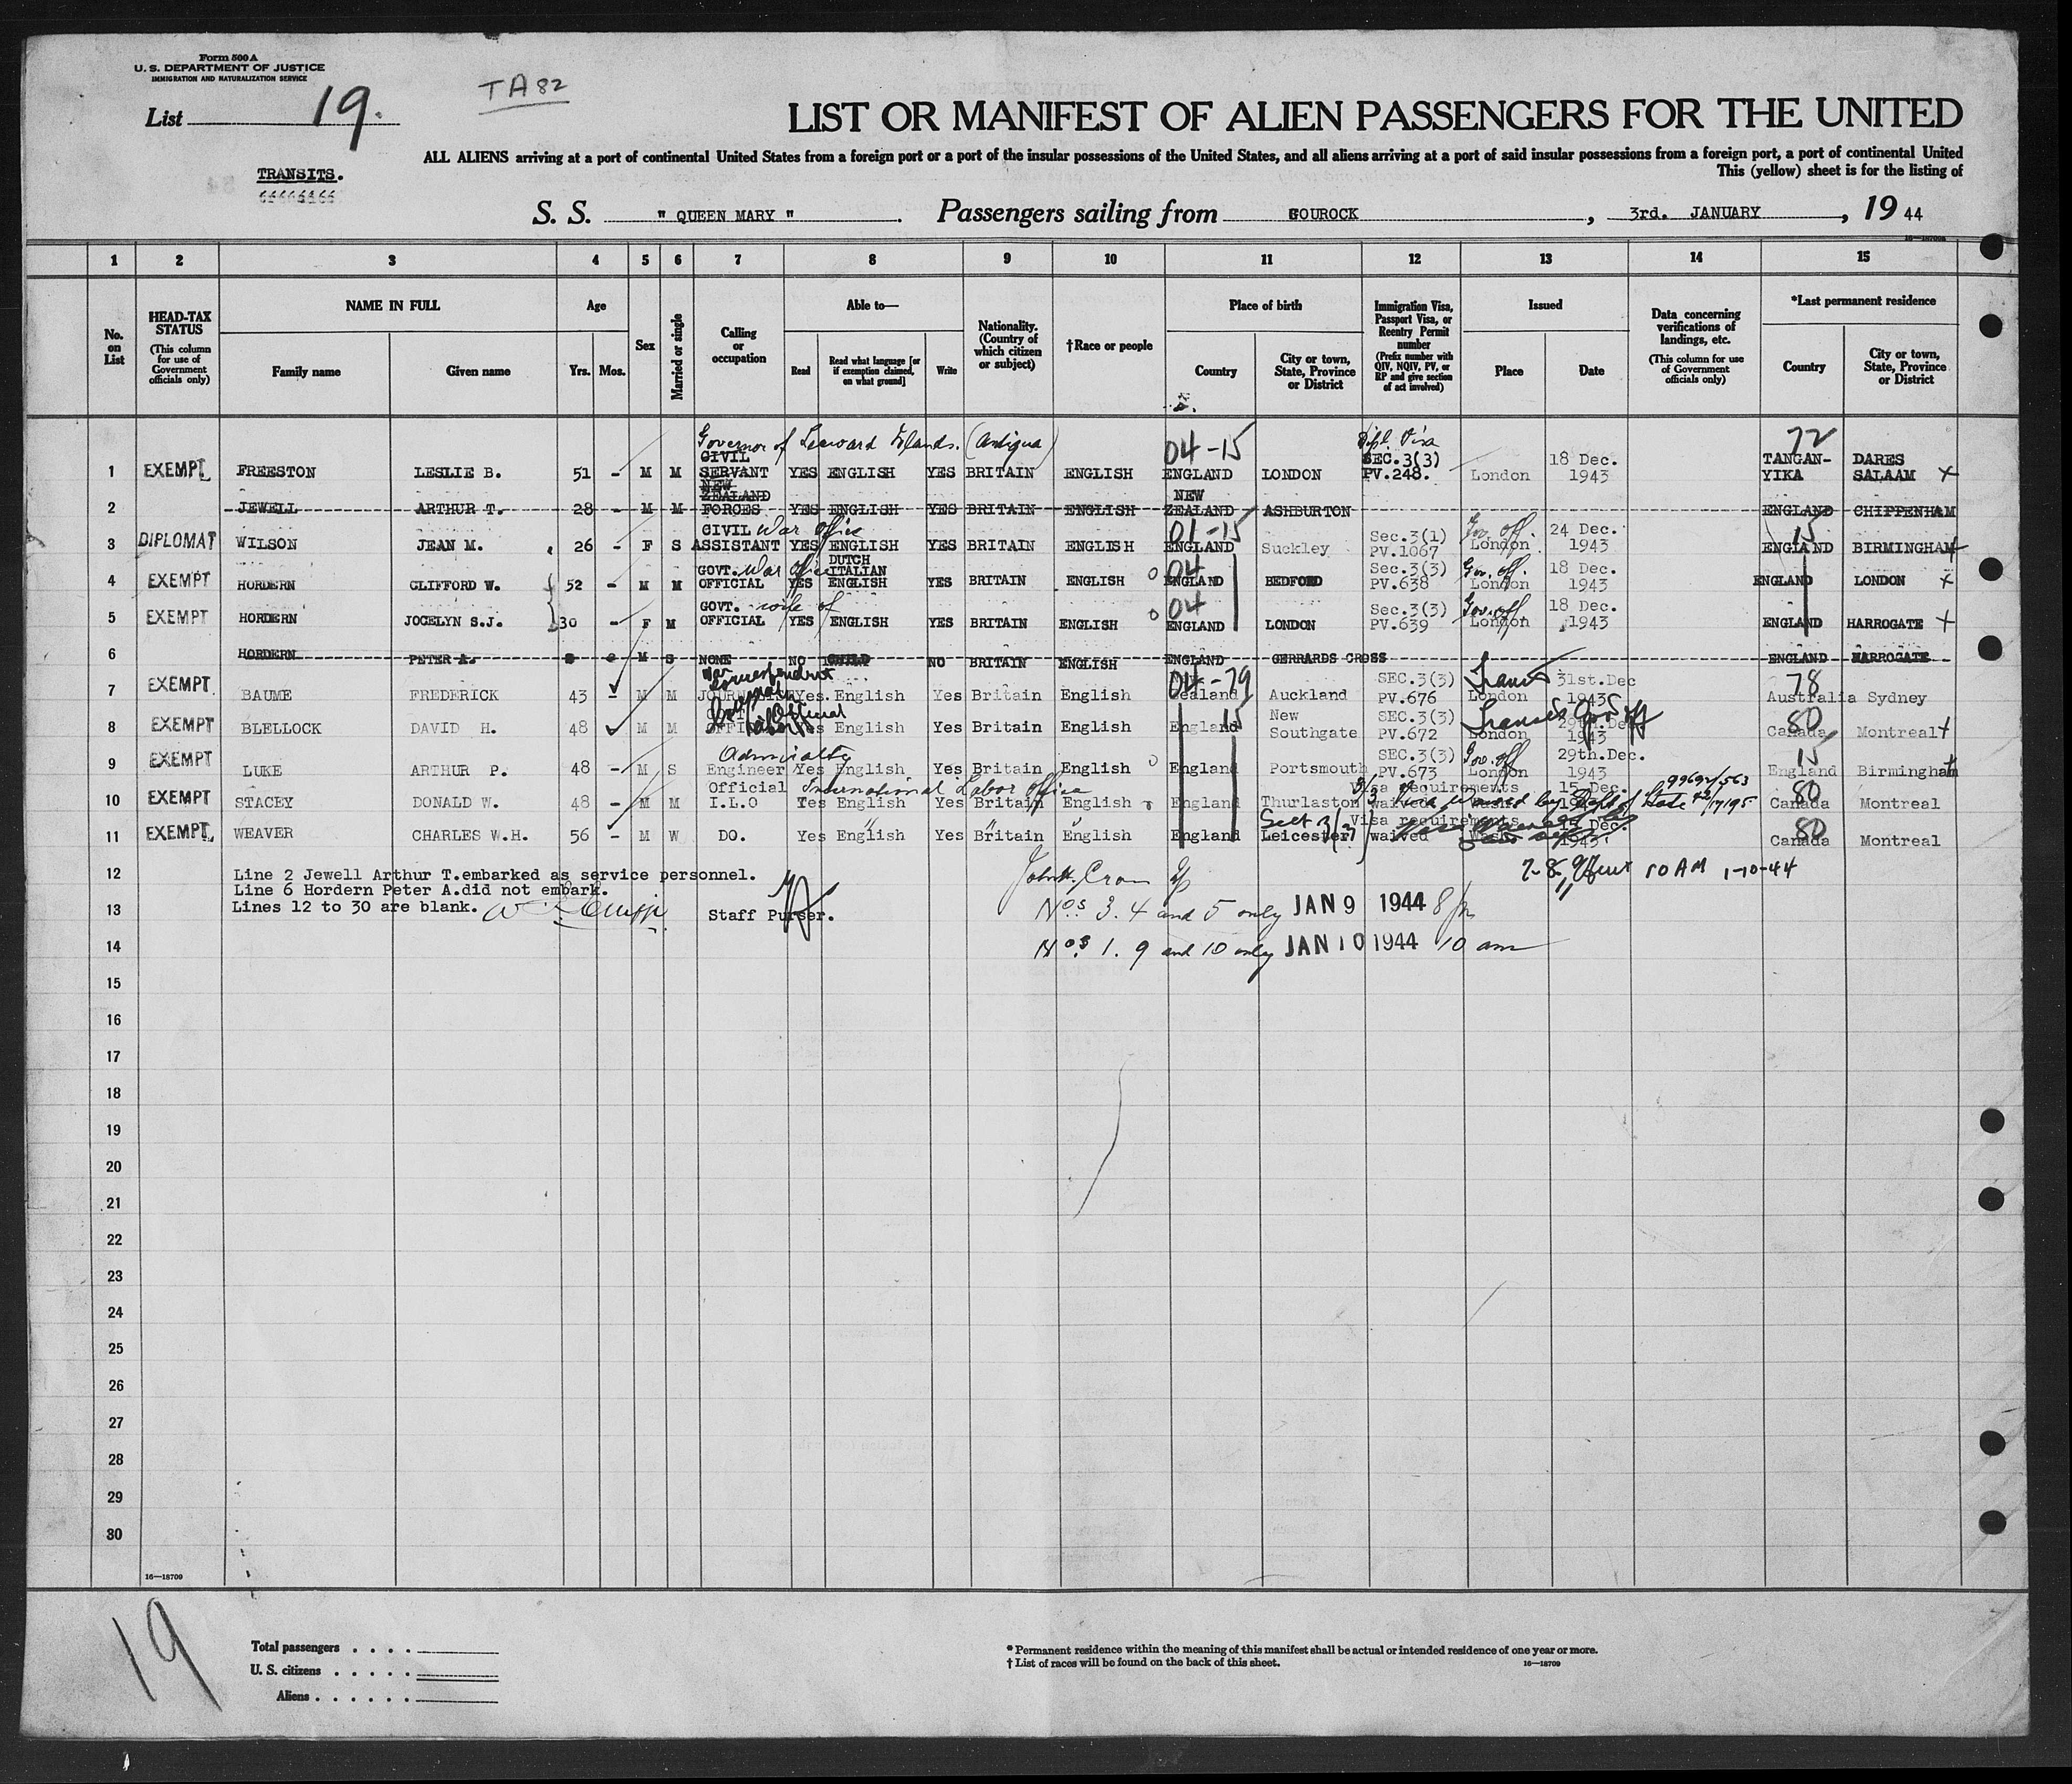 Form 500A
U. S. DEPARTMENT OF JUSTICE
IMMIGRATION AND NATURALIZATION SERVICE
List 19.
TA 82
TRANSITS.
LIST OR MANIFEST OF ALIEN PASSENGERS FOR THE UNITED
ALL ALIENS arriving at a port of continental United States from a foreign port or a port of the insular possessions of the United States, and all aliens arriving at a port of said insular possessions from a foreign port, a port of continental United
This (yellow) sheet is for the listing of
S. S. " QUEEN MARY ". Passengers sailing from GOUROCK, 3rd. JANUARY, 19 44
1 2 3 4 5 6 7 8 9 10 11 12 13 14 15
No. on List
HEAD-TAX STATUS (This column for use of Government officials only)
NAME IN FULL Family name Given name
Age Yrs. Mos.
Sex
Married or single
Calling or occupation
Able to— Read Read what language [or if exemption claimed, on what ground] Write
Nationality. (Country of which citizen or subject)
†Race or people
Place of birth Country City or town, State, Province or District
Immigration Visa, Passport Visa, or Reentry Permit number (Prefix number with QIV, NQIV, PV, or RP and give section of act involved)
Issued Place Date
Data concerning verifications of landings, etc. (This column for use of Government officials only)
*Last permanent residence Country City or town, State, Province or District
Governor of Leeward Islands. (Antigua) 04-15 Dipl. Visa 72
1 EXEMPT FREESTON LESLIE B. 51 - M M CIVIL SERVANT YES ENGLISH YES BRITAIN ENGLISH ENGLAND LONDON SEC.3(3) PV.248. London 18 Dec. 1943 TANGAN-YIKA DARES SALAAM X
2 JEWELL ARTHUR T. 28 - M M NEW ZEALAND FORCES YES ENGLISH YES BRITAIN ENGLISH NEW ZEALAND ASHBURTON ENGLAND CHIPPENHAM
3 DIPLOMAT WILSON JEAN M. 26 - F S CIVIL ASSISTANT War Office YES ENGLISH YES BRITAIN ENGLISH 01-15 ENGLAND Suckley Sec.3(1) PV.1067 Gov. off. London 24 Dec. 1943 15 ENGLAND BIRMINGHAM
4 EXEMPT HORDERN CLIFFORD W. 52 - M M GOVT. OFFICIAL War Office YES DUTCH ITALIAN ENGLISH YES BRITAIN ENGLISH 04 ENGLAND BEDFORD Sec.3(3) PV.638 Gov. off. London 18 Dec. 1943 ENGLAND LONDON X
5 EXEMPT HORDERN JOCELYN S.J. 30 - F M GOVT. OFFICIAL wife of YES ENGLISH YES BRITAIN ENGLISH 04 ENGLAND LONDON Sec.3(3) PV.639 Gov. off London 18 Dec. 1943 ENGLAND HARROGATE X
6 HORDERN PETER A. M S NONE NO CHILD NO BRITAIN ENGLISH ENGLAND GERRARDS CROSS ENGLAND HARROGATE
7 EXEMPT BAUME FREDERICK 43 - M M War Correspondent Yes English Yes Britain English 04-79 Zealand Auckland SEC.3(3) PV.676 Transit London 31st.Dec 1943 78 Australia Sydney
8 EXEMPT BLELLOCK DAVID H. 48 M M Official Yes English Yes Britain English 15 England New Southgate SEC.3(3) PV.672 Transit London 29th.Dec 1943 80 Canada Montreal
9 EXEMPT LUKE ARTHUR P. 48 - M S Admiralty Engineer Yes English Yes Britain English England Portsmouth SEC.3(3) PV.673 Gov. off London 29th.Dec. 1943 15 England Birmingham
10 EXEMPT STACEY DONALD W. 48 - M M Official I.L.O International Labor Office Yes English Yes Britain English England Thurlaston Visa requirements waived Visa Waived by Dept of State 15 Dec. 80 Canada Montreal
11 EXEMPT WEAVER CHARLES W.H. 56 - M W DO. Yes English Yes Britain English England Leicester Sect 3(3) Visa requirements waived 15 Dec. 1943 80 Canada Montreal
12 Line 2 Jewell Arthur T.embarked as service personnel.
Line 6 Hordern Peter A.did not embark.
13 Lines 12 to 30 are blank. Staff Purser.
10 AM 1-10-44
Nos 3. 4 and 5 only JAN 9 1944
14 Nos 1. 9 and 10 only JAN 10 1944 10 am
15
16
17
18
19
20
21
22
23
24
25
26
27
28
29
30
16—18709
19
Total passengers . . . .
U. S. citizens . . . . .
Aliens . . . . . .
* Permanent residence within the meaning of this manifest shall be actual or intended residence of one year or more.
† List of races will be found on the back of this sheet. 16—18709